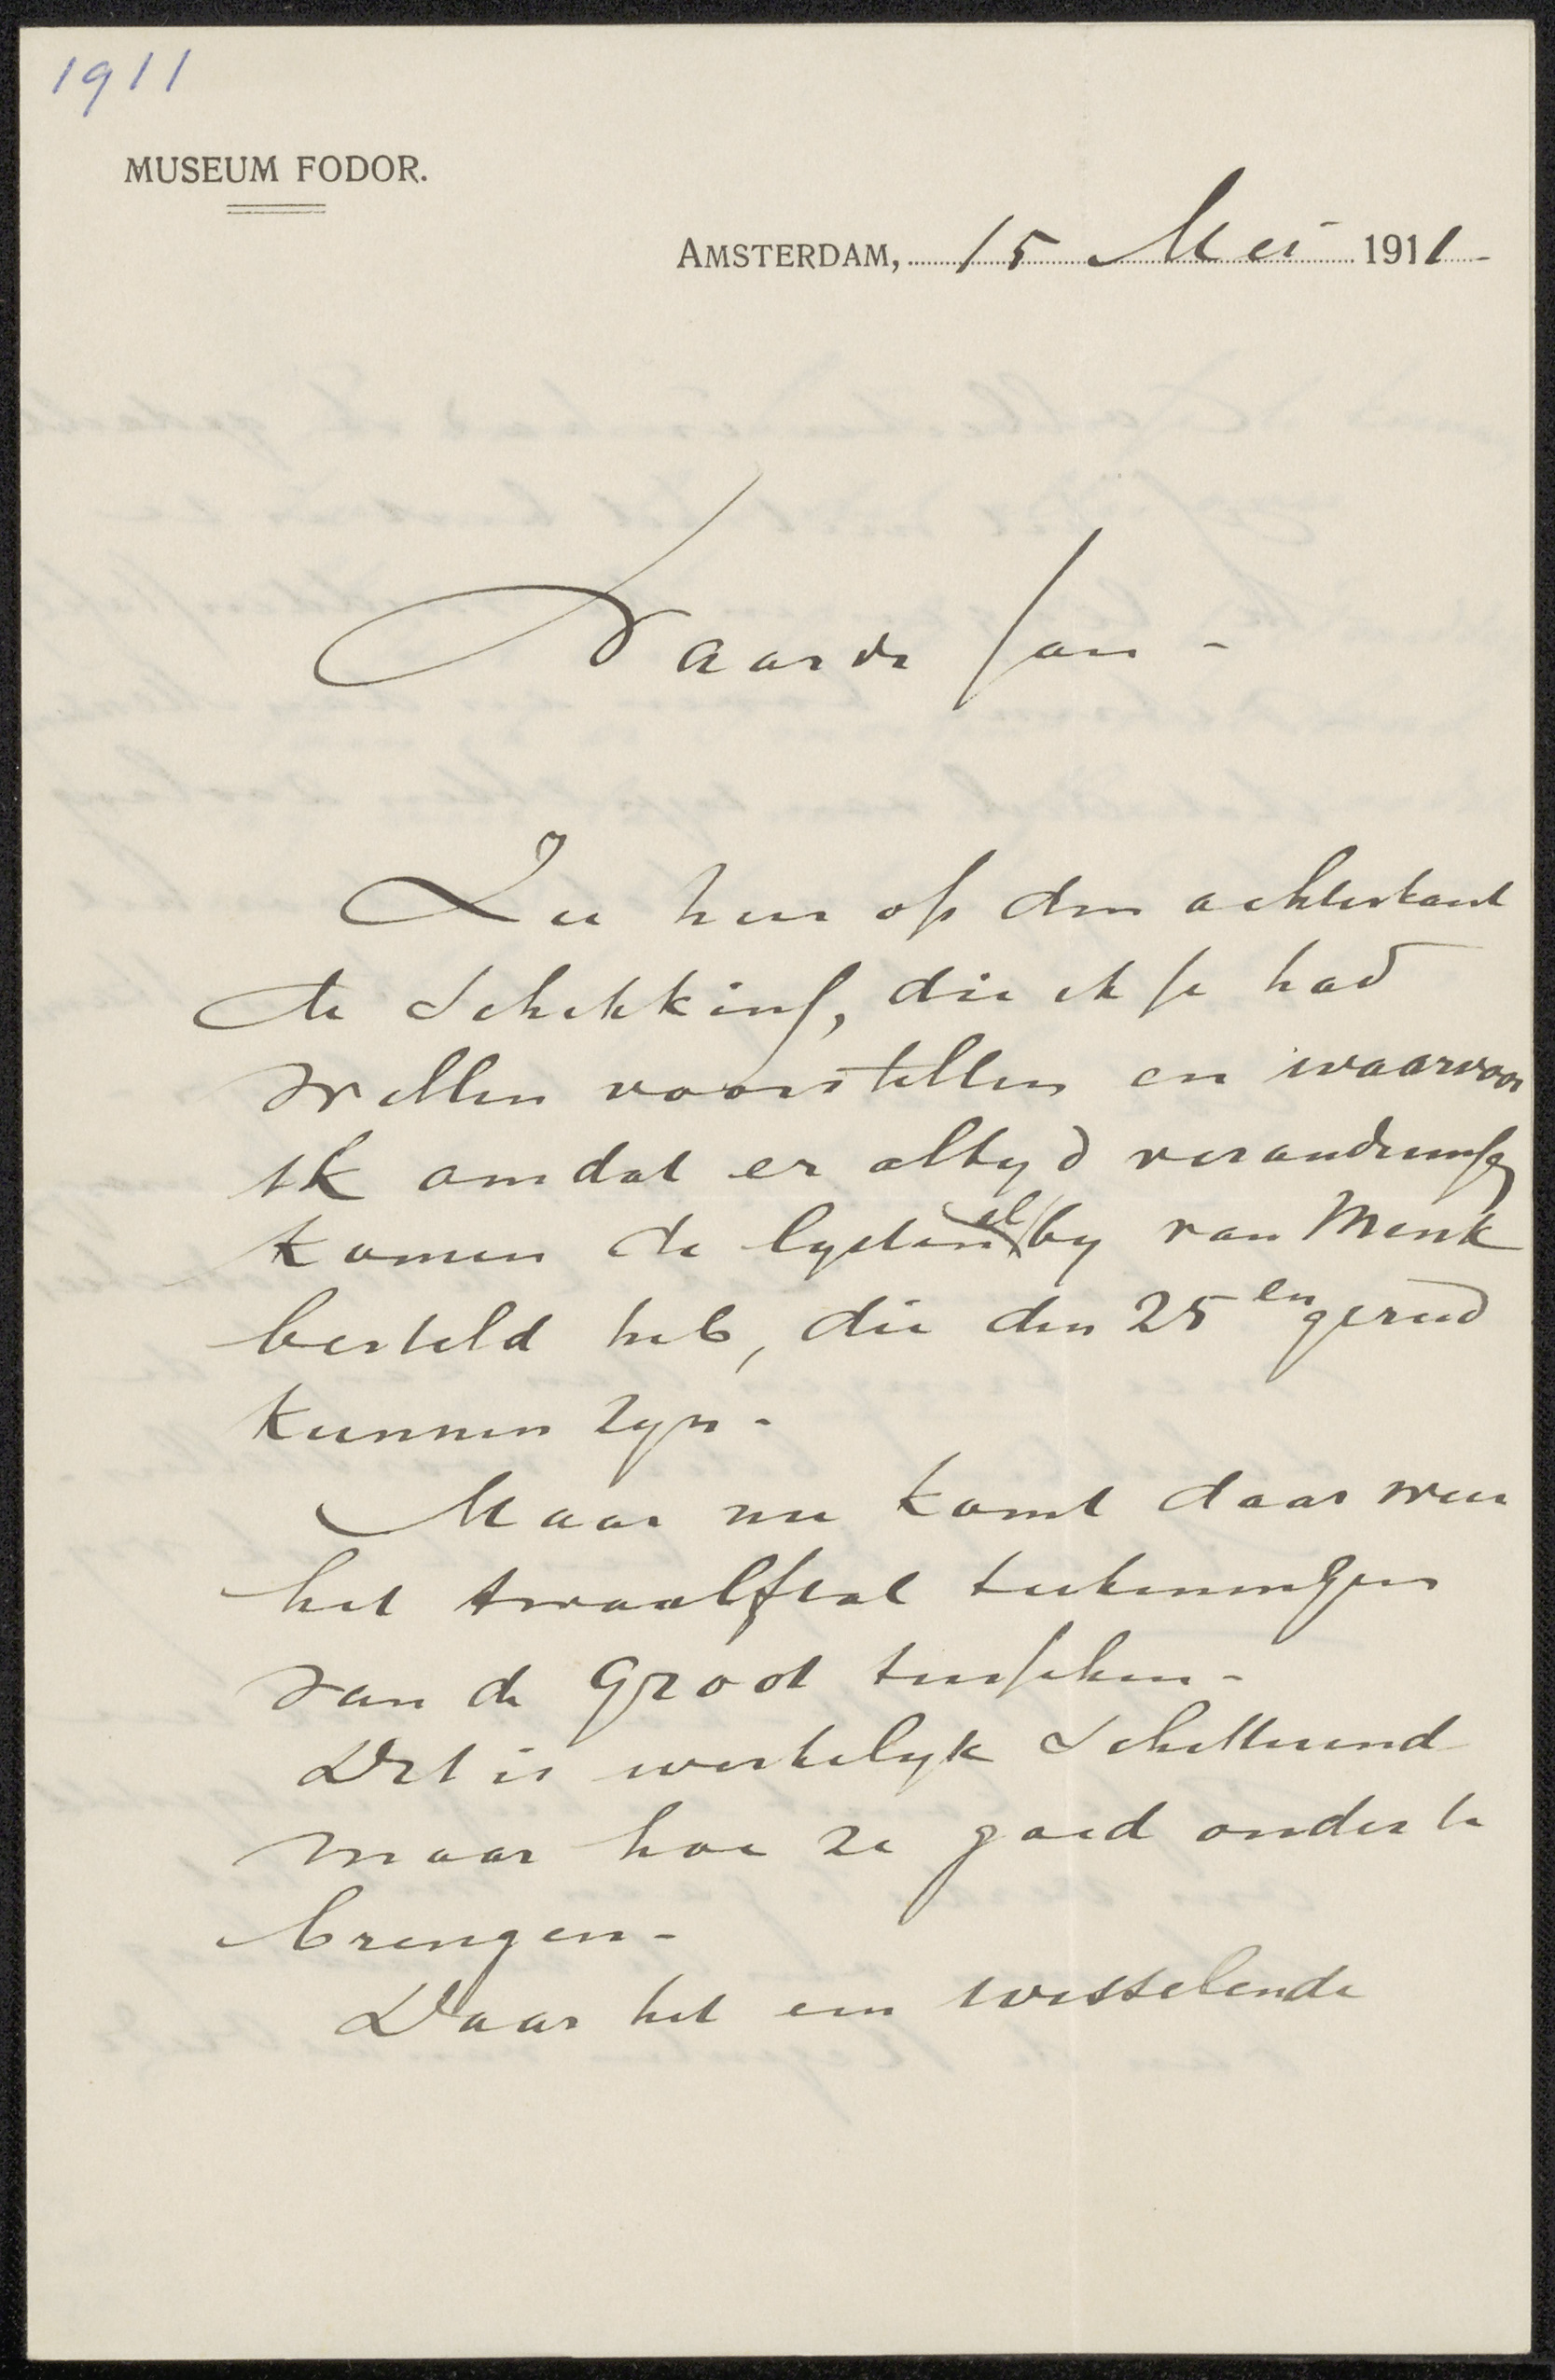 1911
MUSEUM FODOR.
AMSTERDAM, 15 Mei 1911
Waarde Jan -
Zie hier op den achterkant
de schikking, die ik je had
willen voorstellen en waarvoor
ik omdat er altyd veranderingen
komen de lysten al by van Menk
besteld heb, die den 25en gereed
kunnen zyn.
Maar nu komt daar weer
het twaalftal teekeningen
van de Groot tusschen -
Dit is werkelyk schitterend
maar hoe ze goed onder te
brengen -
Daar het een wisselende